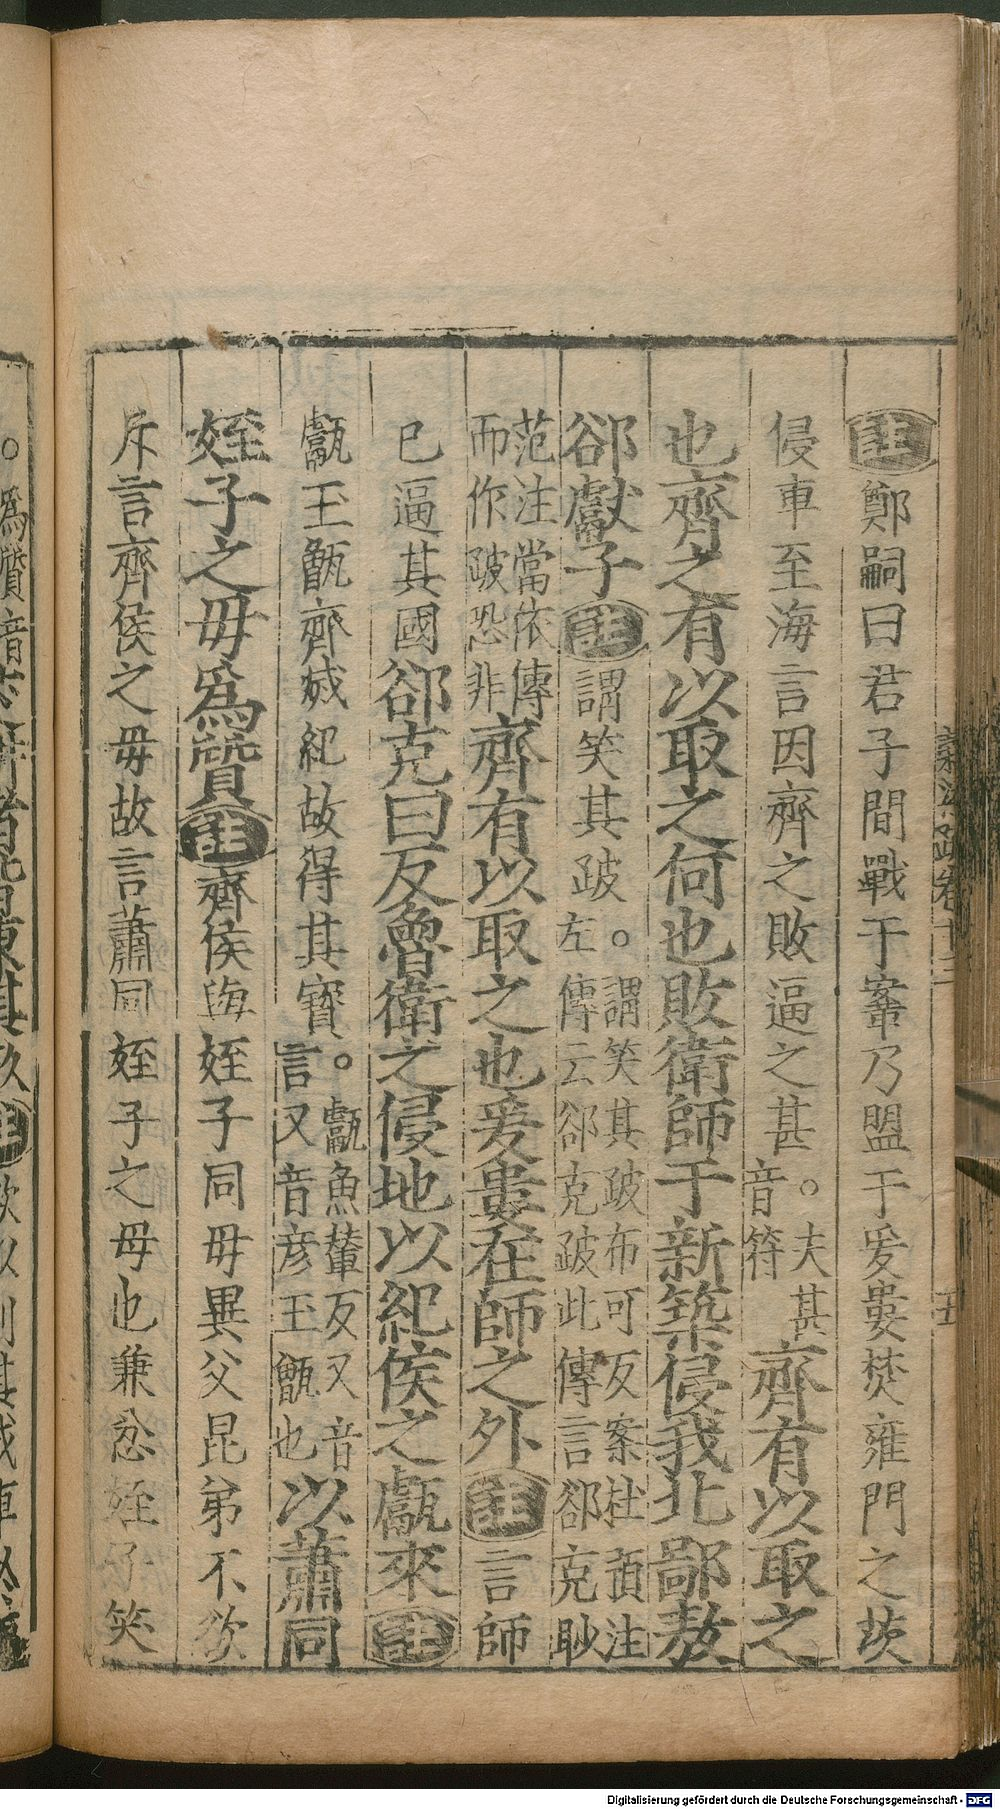 註鄭嗣曰君子閒戰于鞌乃盟于爰婁焚雍門之茨
侵車至海言因齊之敗逼之甚。夫甚音符齊有以取之
也齊之有以取之何也敗衛師于新築侵我北鄙敖
郤獻子註謂笑其跛。謂笑其跛布可反案杜預注左傳云郤克跛此傳言郤克眇
范注當依傳而作跛恐非齊有以取之也爰婁在師之外註言師
已逼其國郤克曰反魯衛之侵地以紀侯之甗來註
甗玉甑齊滅紀故得其寶。甗魚輦反又音言又音彥玉甑也以蕭同
姪子之毋為贄註齊侯與姪子同毋異父昆弟不欲
斥言齊侯之毋故言蕭同姪子之毋也兼忿姪子笑
Digitalisierung gefördert durch die Deutsche Forschungsgemeinschaft - DFG